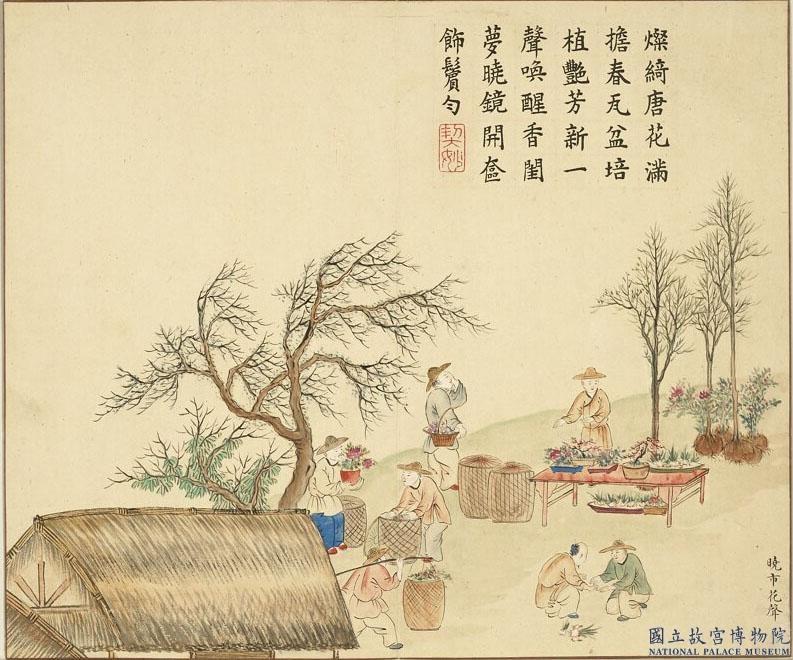 燦綺唐花滿
擔春瓦盆培
植艷芳新一
聲喚醒香閨
夢曉鏡開奩
飾鬢勻
契妙
曉市花聲
國立故宮博物院
NATIONAL PALACE MUSEUM